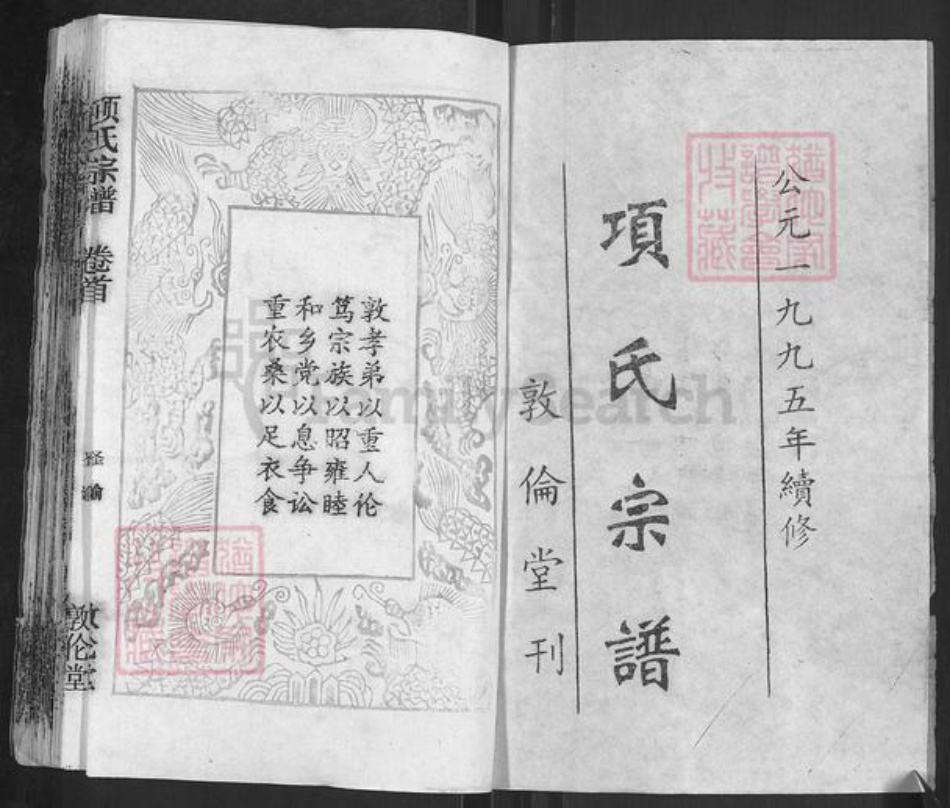 公元一九九五年續修
項氏宗譜
敦倫堂刊
敦孝弟以重人伦
笃宗族以昭雍睦
和乡党以息争讼
重农桑以足衣食
项氏宗谱 卷首
敦伦堂
FamilySearch